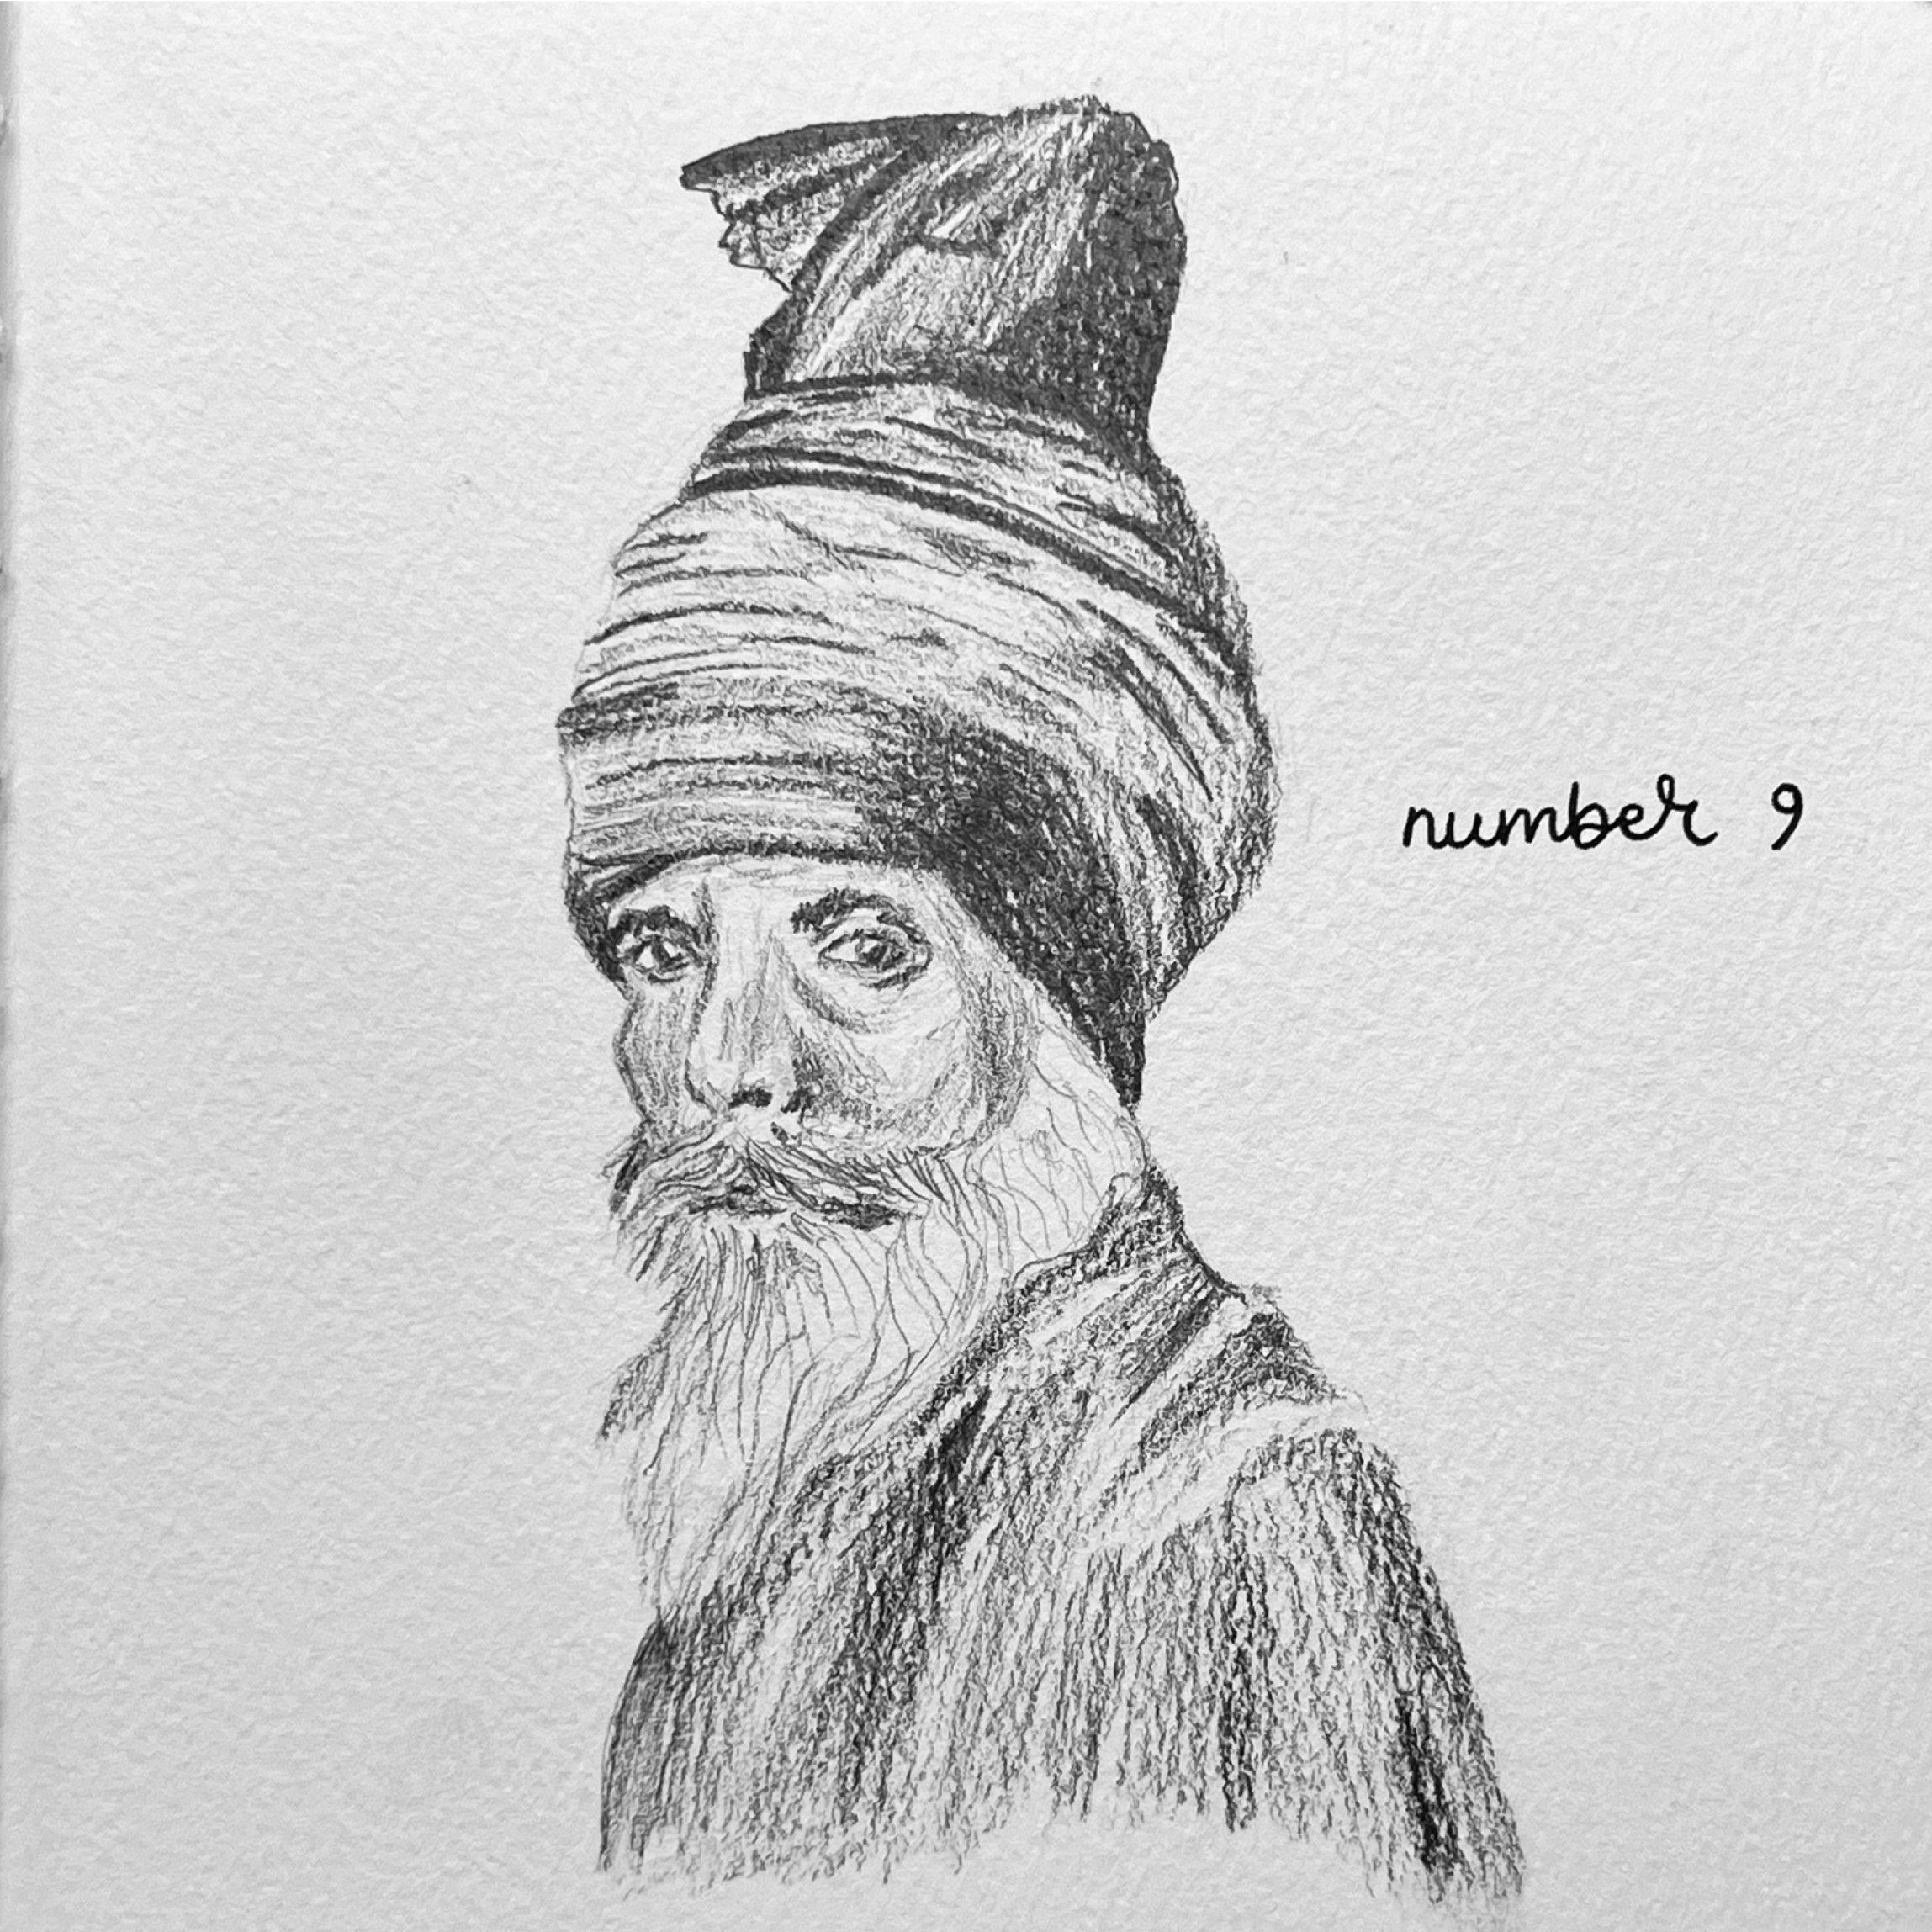 number 9